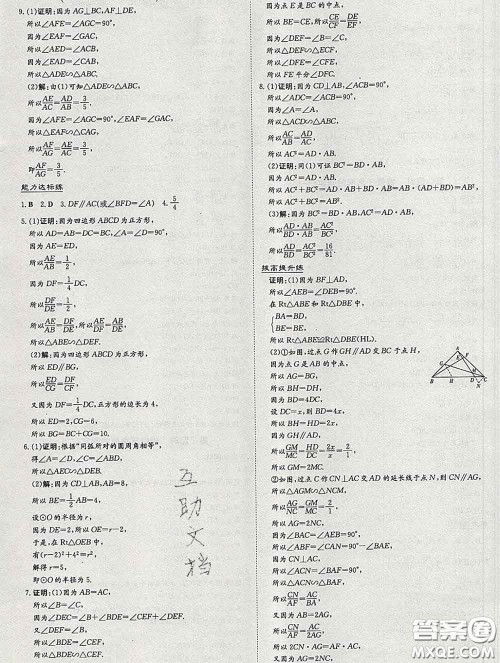 9. (1)证明:因为 AG⊥BC,AF⊥DE,
所以∠AFE=∠AGC=90°.
因为∠EAF=∠GAC,
所以∠AED=∠ACB.
因为∠EAD=∠CAB,
所以△ADE∽△ABC.
(2)解:由(1)可知△ADE∽△ABC,
所以AE/AC=AD/AB=3/5.
因为∠AFE=∠AGC=90°,∠EAF=∠GAC,
所以△EAF∽△CAG,
所以AF/AG=AE/AC,
即AF/AG=3/5.
能力达标练
1. B 2. D 3. DF∥AC(或∠BFD=∠A) 4. 5/4
5. (1)证明:因为四边形 ABCD 为正方形,
所以 AD=AB=DC=BC,∠A=∠D=90°.
因为 AE=ED,
所以AE/AB=1/2.
因为 DF=1/4DC,
所以DF/DE=1/2,
所以AE/AB=DF/DE,所以AE/DF=AB/DE,
所以△ABE∽△DEF.
(2)解:因为四边形 ABCD 为正方形,
所以 ED∥BG,
所以ED/CG=DF/CF.
又因为 DF=1/4DC,正方形的边长为 4,
所以 ED=2,CG=6,
所以 BG=BC+CG=10.
6. (1)证明:根据“同弧所对的圆周角相等”,
得∠A=∠D,∠C=∠ABD,
所以△AEC∽△DEB.
(2)解:因为 CD⊥AB,AB=8,
所以 BE=1/2AB=4.
设⊙O 的半径为 r,
又因为 DE=2,所以 OE=r-2,
于是,在 Rt△OEB 中,
有(r-2)²+4²=r²,
解得 r=5,
即⊙O 的半径为 5.
7. (1)证明:因为 AB=AC,
所以∠B=∠C.
因为∠DEC=∠B+∠BDE=∠CEF+∠DEF,
又∠DEF=∠B,
所以∠BDE=∠CEF,
因为点 E 是 BC 的中点,
所以 BE=CE,所以CE/DE=CF/EF.
所以∠DFE=∠CFE,
所以 FE 平分∠DFC.
8. (1)证明:因为 CD⊥AB,∠ACB=90°,
所以∠ADC=∠ACB=90°.
所以△ACD∽△ABC,
所以AC/AB=AD/AC,
所以 AC²=AD·AB.
(2)证明:同理可证 BC²=BD·AB,
所以 AC²+BC²=AD·AB+BD·AB=(AD+BD)·AB=AB²,
所以 AC²+BC²=AB².
所以AD·AB/BD·AB=AC²/BC²=16/81.
拔高提升练
证明:(1)因为 BF⊥AD,
所以∠AEB=∠DEB=90°.
在 Rt△ABE 和 Rt△DBE 中,
BA=BD,
BE=BE,
所以 Rt△ABE≌Rt△DBE(HL).
(2)①如图,过点 G 作 GH∥AD 交 BC 于点 H,
因为点 G 是 AB 的中点,
所以 AG=BG,
所以 BH=DH.
设 DC=x,则 BD=4x,
所以 BH=DH=2x.
因为 GH∥AD,
所以GM/MC=HD/DC=2x/x=2/1.
②如图,过点 C 作 CN⊥AC 交 AD 的延长线于点 N,则 CN∥AG,
所以△AGM∽△NCM,
所以AG/NC=GM/MC=2/1,
所以 AG=2NC,
因为∠BAC=∠AEB=90°,
所以∠ABF=∠CAN=90°-∠BAE,
所以△ACN∽△BAF,
所以CN/AF=AC/AB.
因为 AB=2AG,
所以CN/AF=AC/2AG,
又因为 AG=2NC,
互助文档
答案圈
MXQE.COM